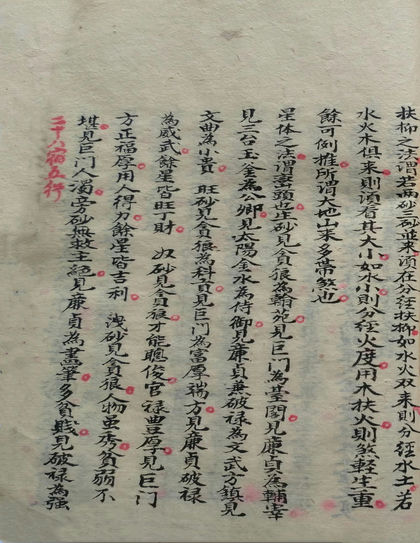 扶抑之法謂若兩砂三砂並來須在分經扶抑如水火双來則分經水土若
水火木俱來則須看其大小如水小則分經火度用木扶火則煞輕生重
餘可例推所謂大地山來多帶煞也
星体之法謂巒頭也庄砂見貪狼為翰苑見巨門為臺閣見廉貞為輔宰
見三台玉釜為公卿見太陽金水為侍御見廉貞兼破祿為文武方鎮見
文曲為小貴 旺砂見貪狼為科貢見巨門為富厚端方見廉貞破祿
為威武餘星皆旺丁財 奴砂見貪狼才能聰俊官祿豊厚見巨門
方正福厚用人得力餘星皆吉利 洩砂見貪狼人物虽秀貧弱不
堪見巨門人濁旁砂無救主絕見廉貞為畫筆多貧賤見破祿為強
二十八宿五行